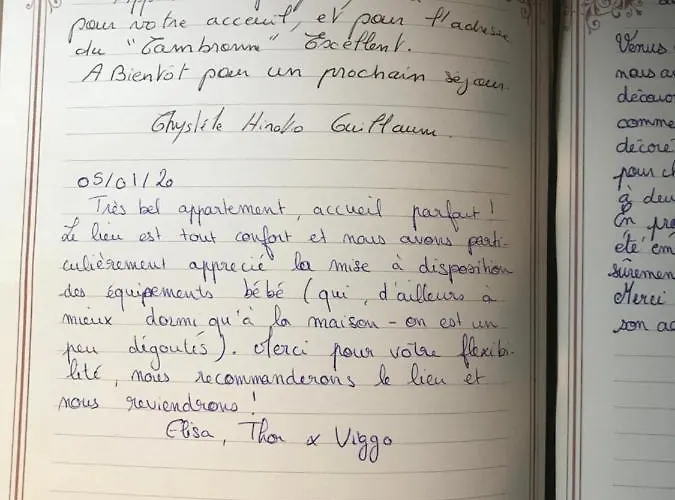 pour votre acceuil, et pour l'adresse
du "Cambronne" Excellent.
A Bientôt pour un prochain séjour.
Hinako Guillaum.
05/01/20
Très bel appartement, accueil parfait!
Le lieu est tout confort et nous avons parti-
culièrement apprecié la mise à disposition
des équipements bébé (qui, d'ailleurs à
mieux dormi qu'à la maison - on est un
peu dégoutés). Merci pour votre flexibi-
lité, nous recommanderons le lieu et
nous reviendrons!
Elisa, Thor & Viggo
Venus
nous a
décou
comme
décoré
pour c
à deu
En pr
été ém
sûremen
Merci
son ac